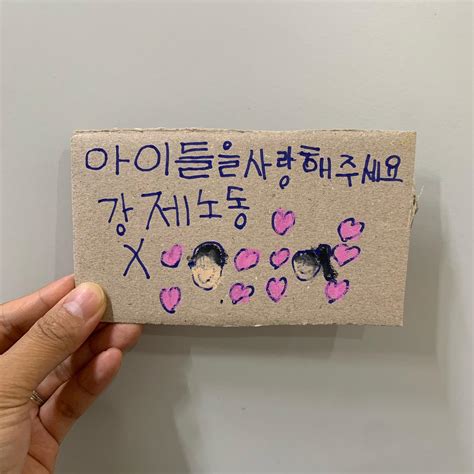 아이들을사랑해주세요
강제노동
X